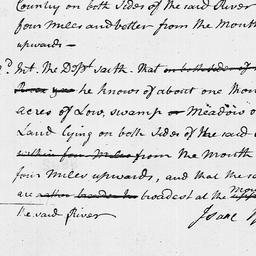 Country on both Sides of the said River
four Miles and better from the Mouth
upwards —
Int. The Dept saith. That on both sides of
River yea he knows of about one
acres of Low, swamp or Meadow
Land lying on both Sides of the said
within four Miles from the Mouth
four Miles upwards, and that the
are rather broader broadest at the
the said River
Isaac